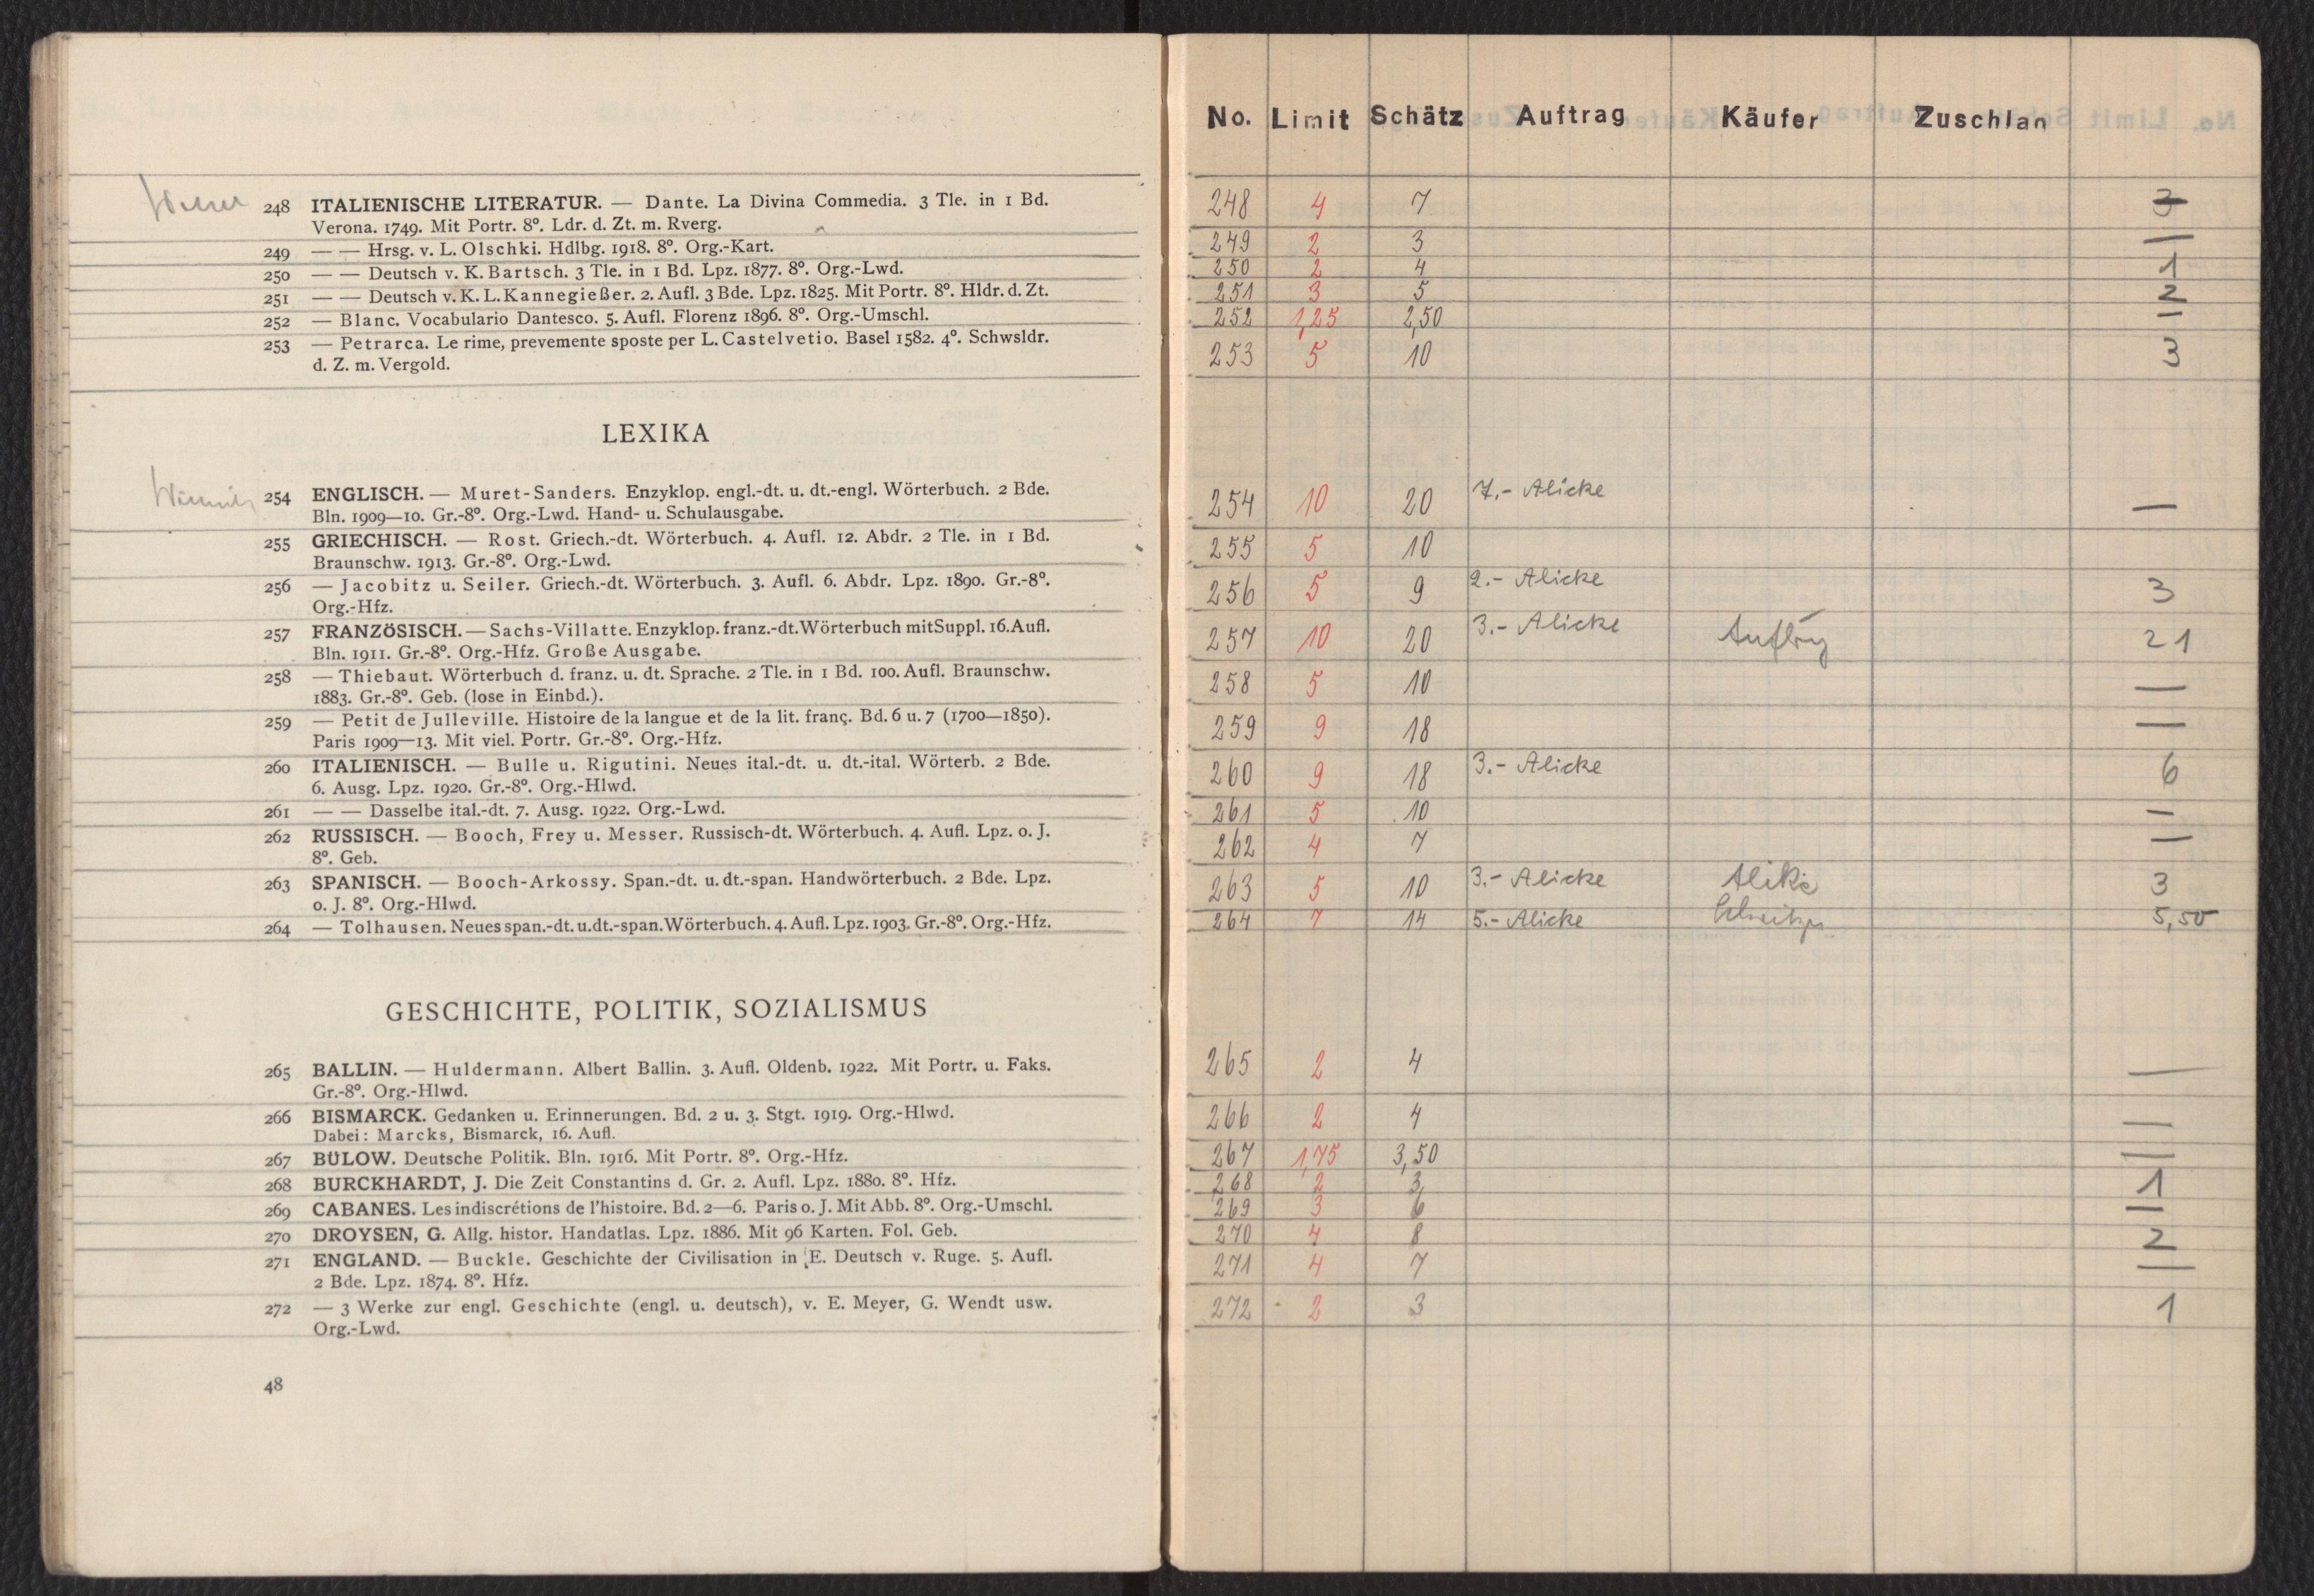 248 ITALIENISCHE LITERATUR. — Dante. La Divina Commedia. 3 Tle. in 1 Bd.
Verona. 1749. Mit Portr. 8º. Ldr. d. Zt. m. Rverg.
249 — — Hrsg. v. L. Olschki. Hdlbg. 1918. 8º. Org.-Kart.
250 — — Deutsch v. K. Bartsch. 3 Tle. in 1 Bd. Lpz. 1877. 8º. Org.-Lwd.
251 — — Deutsch v. K. L. Kannegießer. 2. Aufl. 3 Bde. Lpz. 1825. Mit Portr. 8º. Hldr. d. Zt.
252 — Blanc. Vocabulario Dantesco. 5. Aufl. Florenz 1896. 8º. Org.-Umschl.
253 — Petrarca. Le rime, prevemente sposte per L. Castelvetio. Basel 1582. 4º. Schwsldr.
d. Z. m. Vergold.
LEXIKA
254 ENGLISCH. — Muret-Sanders. Enzyklop. engl.-dt. u. dt.-engl. Wörterbuch. 2 Bde.
Bln. 1909—10. Gr.-8º. Org.-Lwd. Hand- u. Schulausgabe.
255 GRIECHISCH. — Rost. Griech.-dt. Wörterbuch. 4. Aufl. 12. Abdr. 2 Tle. in 1 Bd.
Braunschw. 1913. Gr.-8º. Org.-Lwd.
256 — Jacobitz u. Seiler. Griech.-dt. Wörterbuch. 3. Aufl. 6. Abdr. Lpz. 1890. Gr.-8º.
Org.-Hfz.
257 FRANZÖSISCH. — Sachs-Villatte. Enzyklop. franz.-dt. Wörterbuch mit Suppl. 16. Aufl.
Bln. 1911. Gr.-8º. Org.-Hfz. Große Ausgabe.
258 — Thiebaut. Wörterbuch d. franz. u. dt. Sprache. 2 Tle. in 1 Bd. 100. Aufl. Braunschw.
1883. Gr.-8º. Geb. (lose in Einbd.).
259 — Petit de Julleville. Histoire de la langue et de la lit. franç. Bd. 6 u. 7 (1700—1850).
Paris 1909—13. Mit viel. Portr. Gr.-8º. Org.-Hfz.
260 ITALIENISCH. — Bulle u. Rigutini. Neues ital.-dt. u. dt.-ital. Wörterb. 2 Bde.
6. Ausg. Lpz. 1920. Gr.-8º. Org.-Hlwd.
261 — — Dasselbe ital.-dt. 7. Ausg. 1922. Org.-Lwd.
262 RUSSISCH. — Booch, Frey u. Messer. Russisch-dt. Wörterbuch. 4. Aufl. Lpz. o. J.
8º. Geb.
263 SPANISCH. — Booch-Arkossy. Span.-dt. u. dt.-span. Handwörterbuch. 2 Bde. Lpz.
o. J. 8º. Org.-Hlwd.
264 — Tolhausen. Neues span.-dt. u. dt.-span. Wörterbuch. 4. Aufl. Lpz. 1903. Gr.-8º. Org.-Hfz.
GESCHICHTE, POLITIK, SOZIALISMUS
265 BALLIN. — Huldermann. Albert Ballin. 3. Aufl. Oldenb. 1922. Mit Portr. u. Faks.
Gr.-8º. Org.-Hlwd.
266 BISMARCK. Gedanken u. Erinnerungen. Bd. 2 u. 3. Stgt. 1919. Org.-Hlwd.
Dabei: Marcks, Bismarck, 16. Aufl.
267 BÜLOW. Deutsche Politik. Bln. 1916. Mit Portr. 8º. Org.-Hfz.
268 BURCKHARDT, J. Die Zeit Constantins d. Gr. 2. Aufl. Lpz. 1880. 8º. Hfz.
269 CABANES. Les indiscrétions de l'histoire. Bd. 2—6. Paris o. J. Mit Abb. 8º. Org.-Umschl.
270 DROYSEN, G. Allg. histor. Handatlas. Lpz. 1886. Mit 96 Karten. Fol. Geb.
271 ENGLAND. — Buckle. Geschichte der Civilisation in E. Deutsch v. Ruge. 5. Aufl.
2 Bde. Lpz. 1874. 8º. Hfz.
272 — 3 Werke zur engl. Geschichte (engl. u. deutsch), v. E. Meyer, G. Wendt usw.
Org.-Lwd.
48
No. Limit Schätz Auftrag Käufer Zuschlan
248 4 7
249 2 3 —
250 2 4 1
251 3 5 2
252 1,25 2,50 —
253 5 10 3
254 10 20 7.- Alicke —
255 5 10
256 5 9 2.- Alicke 3
257 10 20 3.- Alicke 21
258 5 10 —
259 9 18 —
260 9 18 3.- Alicke 6
261 5 10 —
262 4 7 —
263 5 10 3.- Alicke Alike 3
264 7 14 5.- Alicke 5,50
265 2 4 —
266 2 4 —
267 1,75 3,50 —
268 2 3 1
269 3 6 —
270 4 8 2
271 4 7 —
272 2 3 1